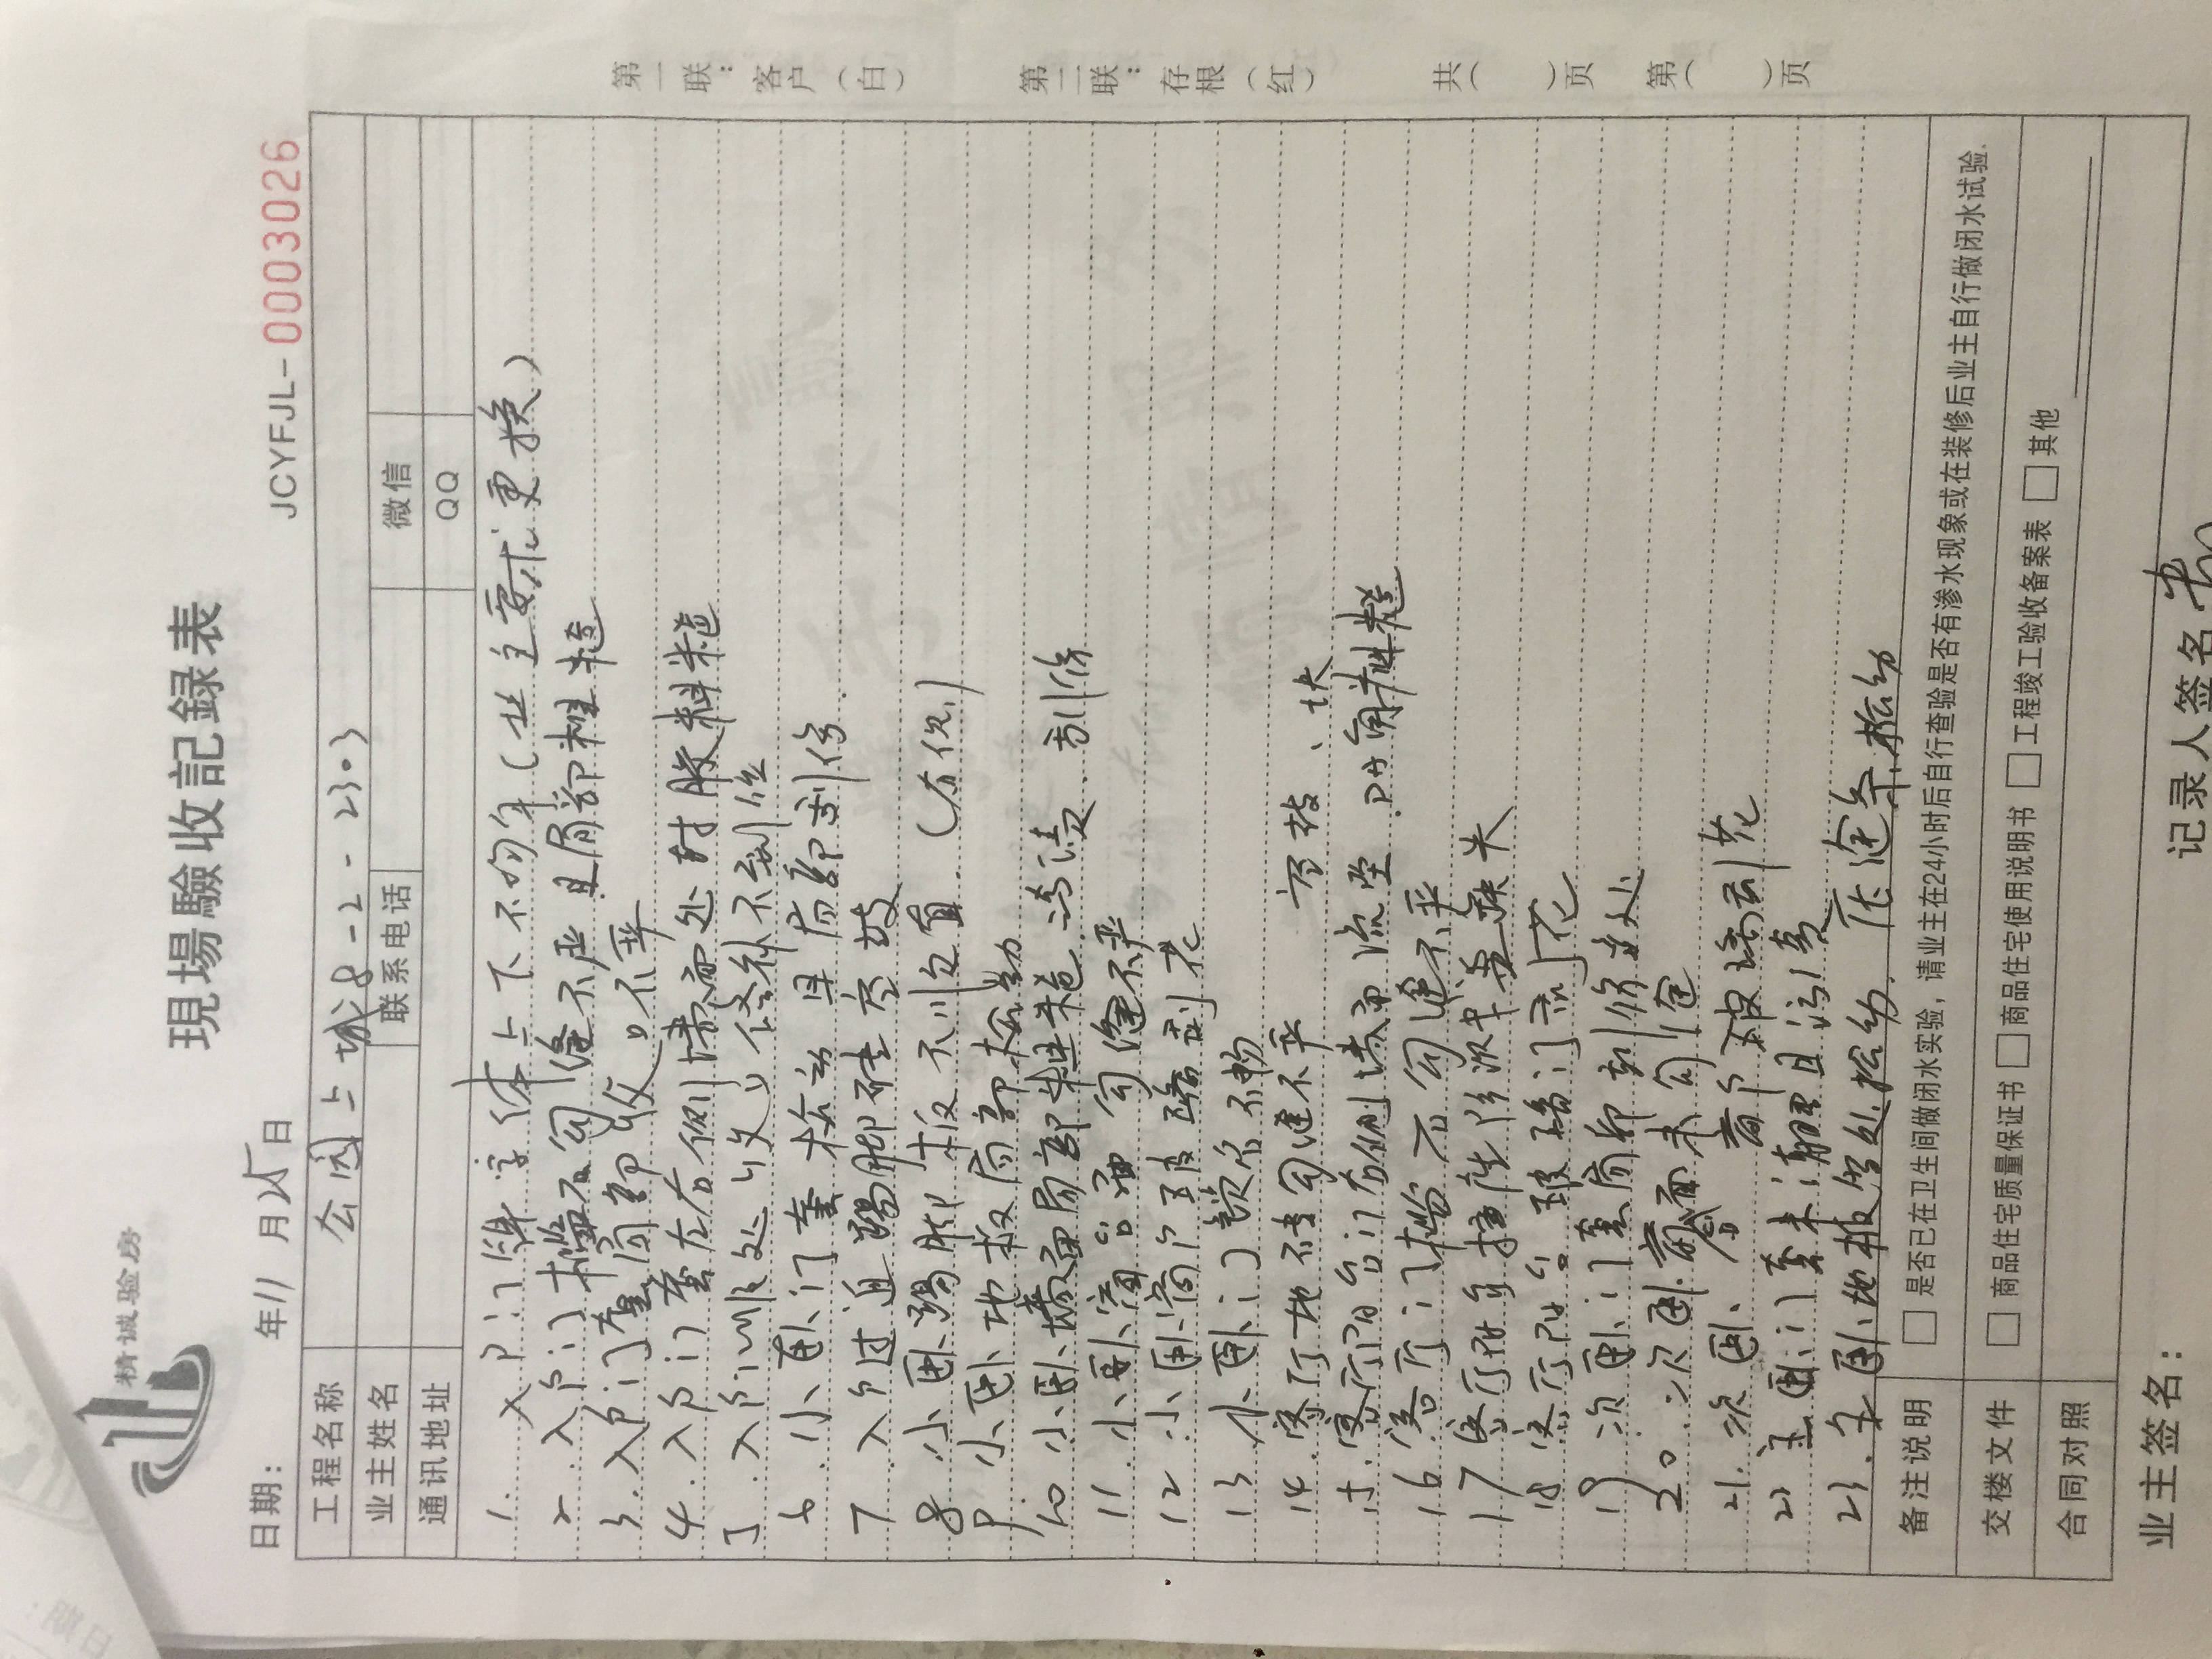 精诚验房
現場驗收記録表
日期： 年11月25日
JCYFJL-0003026
工程名称 公园上城8-2-2303
业主姓名 联系电话 微信
通讯地址 QQ
1. 入户门牌字体上下不均匀（业主要求更换）
2. 入户门槛石勾缝不严且局部粗糙
3. 入户门套局部收口不严
4. 入户门套左右侧墙面处封胶粗糙
5. 入户门收口修补不到位
6. 小卧门套松动且局部刮伤
7. 入户过道踢脚砖空鼓
8. 小卧踢脚板不顺直.（右侧）
9. 小卧地板局部松动
10 小卧墙面局部粗糙.污渍.刮伤
11. 小卧窗台面勾缝不严
12 小卧窗户玻璃刮花
13 小卧门锁不畅
14. 客厅地砖勾缝不严 空鼓、块
15. 客厅阳台门右侧墙面流坠.阴角粗糙
16 客厅门槛石勾缝不严
17 客厅阳台插座防溅盖缺失
18 客厅阳台玻璃门刮花
19 次卧门套局部刮伤多处
20. 次卧窗台面未勾缝
21. 次卧 窗户玻璃刮花
22 主卧门套未清理且污渍
23. 主卧地板多处松动.压缝条松动
备注说明 □ 是否已在卫生间做闭水实验，请业主在24小时后自行查验是否有渗水现象或在装修后业主自行做闭水试验.
交楼文件 □ 商品住宅质量保证书 □ 商品住宅使用说明书 □ 工程竣工验收备案表 □ 其他
合同对照
业主签名：
记录人签名
第一联：客户（白） 第二联：存根（红） 共（ ）页 第（ ）页